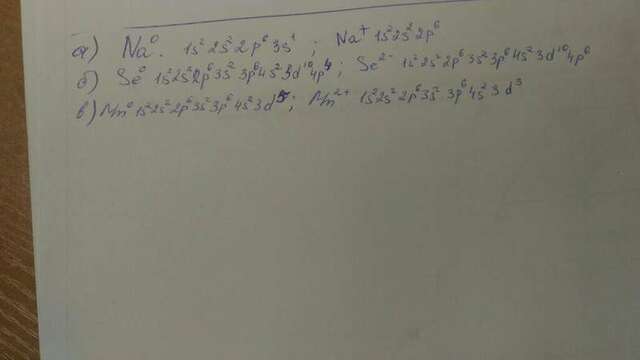 а) Na⁰. 1s² 2s² 2p⁶ 3s¹ ; Na⁺ 1s² 2s² 2p⁶
б) Se⁰ 1s² 2s² 2p⁶ 3s² 3p⁶ 4s² 3d¹⁰ 4p⁴ ; Se²⁻ 1s² 2s² 2p⁶ 3s² 3p⁶ 4s² 3d¹⁰ 4p⁶
в) Mn⁰ 1s² 2s² 2p⁶ 3s² 3p⁶ 4s² 3d⁵ ; Mn²⁺ 1s² 2s² 2p⁶ 3s² 3p⁶ 4s² 3d³